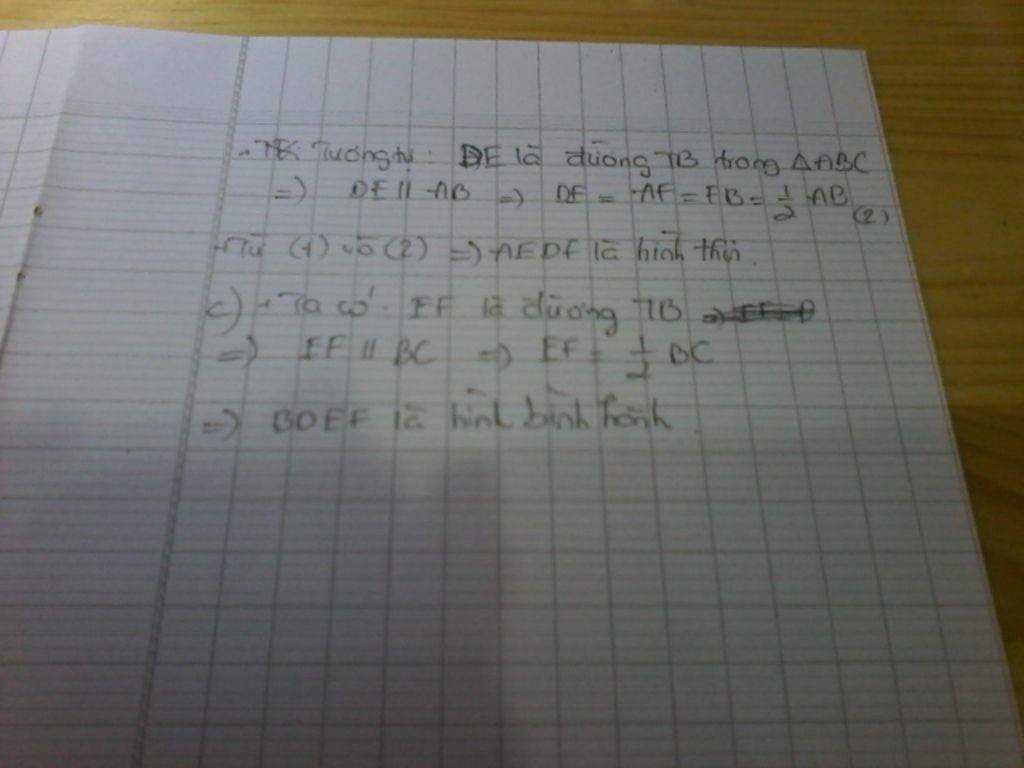 Tương tự: DE là đường TB trong ΔABC
=) DE // AB =) DE = AF = FB = 1/2 AB (2)
Từ (1) và (2) =) AEDF là hình thoi.
c) + Ta có: EF là đường TB
=) EF // BC =) EF = 1/2 BC
=) BDEF là hình bình hành